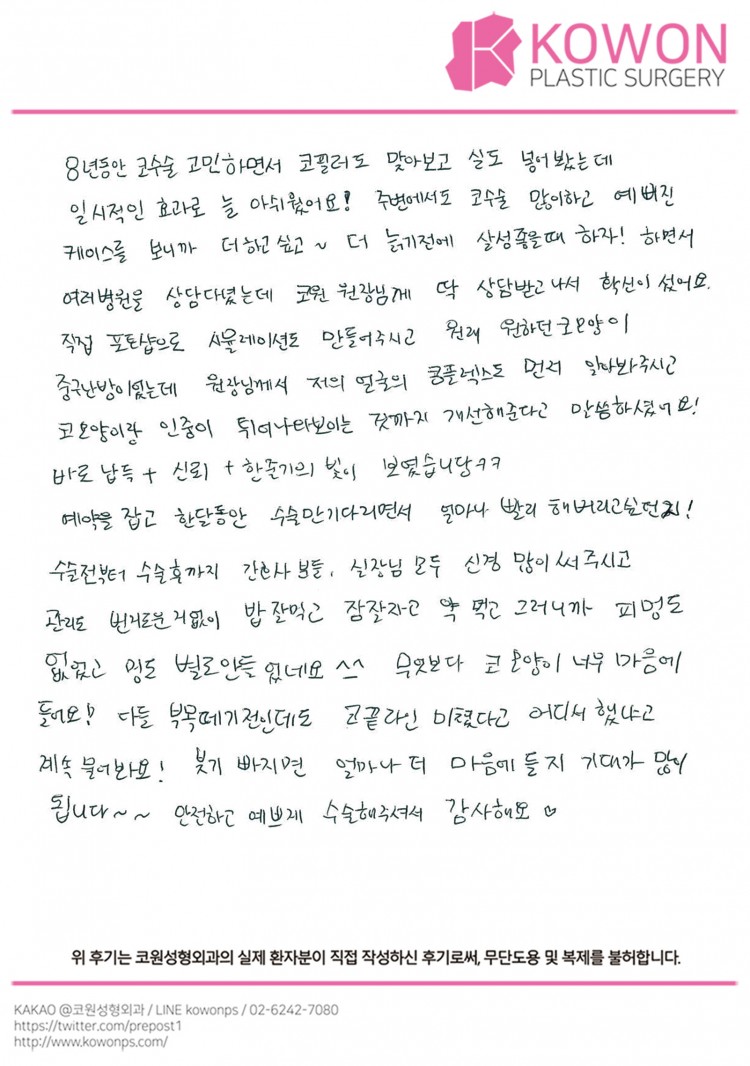 KOWON
PLASTIC SURGERY
8년동안 코수술 고민하면서 코필러도 맞아보고 실도 넣어봤는데
일시적인 효과로 늘 아쉬웠어요! 주변에서도 코수술 많이하고 예뻐진
케이스를 보니까 더하고싶고~ 더 늙기전에 살성좋을때 하자! 하면서
여러병원을 상담다녔는데 코원 원장님께 딱 상담받고나서 확신이 섰어요.
직접 포토샵으로 시뮬레이션도 만들어주시고 원래 원하던 코모양이
중구난방이었는데 원장님께서 저의 얼굴의 콤플렉스도 먼저 알아봐주시고
코모양이랑 인중이 튀어나와보이는 것까지 개선해준다고 말씀하셨어요!
바로 납득 + 신뢰 + 한줄기의 빛이 보였습니당ㅋㅋ
예약을 잡고 한달동안 수술만기다리면서 얼마나 빨리 해버리고싶던지!
수술전부터 수술후까지 간호사 분들, 실장님 모두 신경 많이써주시고
관리도 번거로운거없이 밥잘먹고 잠잘자고 약 먹고 그러니까 피멍도
없었고 멍도 별로안들었네요 ^^ 무엇보다 코모양이 너무 마음에
들어요! 다들 부목떼기전인데도 코끝라인 미쳤다고 어디서 했냐고
계속 물어봐요! 붓기 빠지면 얼마나 더 마음에 들지 기대가 많이
됩니다~~ 안전하고 예쁘게 수술해주셔서 감사해요 ♡
위 후기는 코원성형외과의 실제 환자분이 직접 작성하신 후기로써, 무단도용 및 복제를 불허합니다.
KAKAO @코원성형외과 / LINE kowonps / 02-6242-7080
https://twitter.com/prepost1
http://www.kowonps.com/